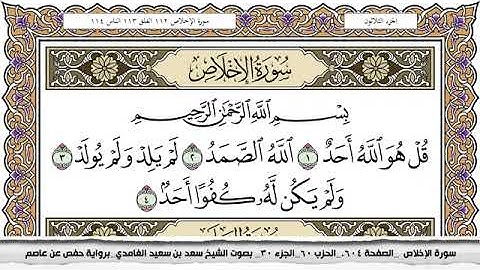 الجزء الثلاثون
سورة الإخلاص ١١٢ الفلق ١١٣ الناس ١١٤
سُورَةُ الإِخْلَاصِ
بِسْمِ اللَّهِ الرَّحْمَٰنِ الرَّحِيمِ
قُلْ هُوَ اللَّهُ أَحَدٌ ١ اللَّهُ الصَّمَدُ ٢ لَمْ يَلِدْ وَلَمْ يُولَدْ ٣
وَلَمْ يَكُن لَّهُ كُفُوًا أَحَدٌ ٤
سورة الإخلاص _الصفحة ٦٠٤_ الحزب ٦٠_ الجزء ٣٠_ بصوت الشيخ سعد بن سعيد الغامدي_برواية حفص عن عاصم